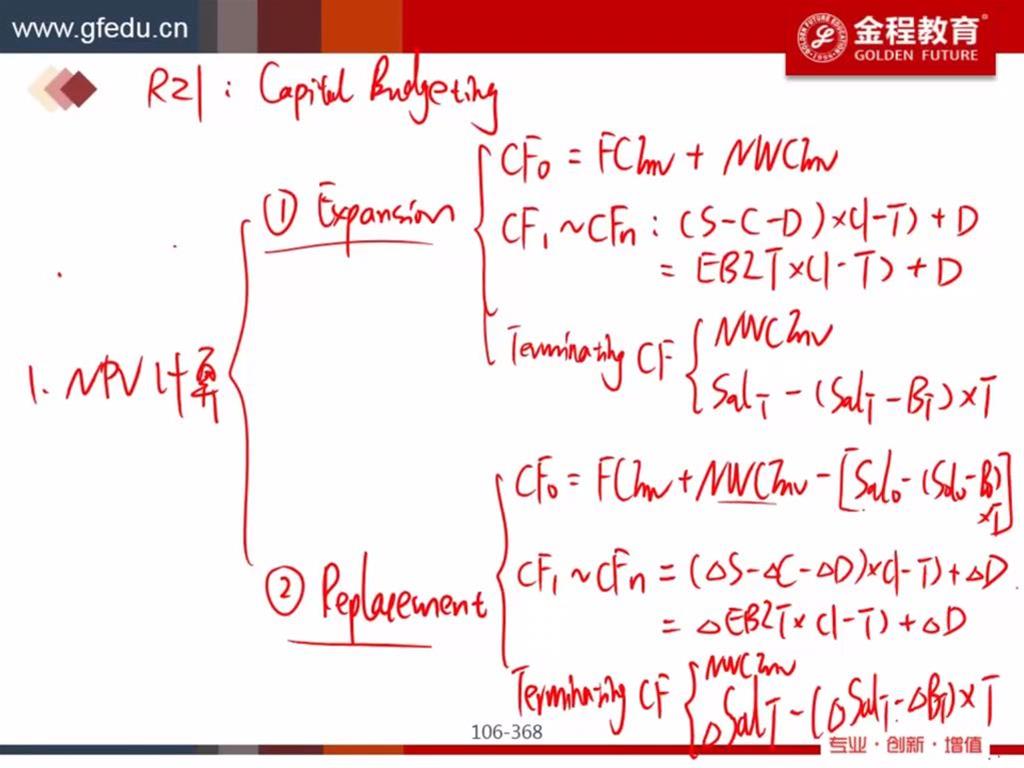 www.gfedu.cn
金程教育®
GOLDEN FUTURE
R21: Capital Budgeting
1. NPV计算
① Expansion
CF₀ = FCInv + NWCInv
CF₁ ~ CFn: (S-C-D)×(1-T) + D
= EBIT×(1-T) + D
Terminating CF
NWCInv
Sal_T - (Sal_T - B_T)×T
② Replacement
CF₀ = FCInv + NWCInv - [Sal₀ - (Sal₀ - B₀)×T]
CF₁ ~ CFn = (△S-△C-△D)×(1-T) + △D
= △EBIT×(1-T) + △D
Terminating CF
NWCInv
△Sal_T - (△Sal_T - △B_T)×T
106-368
专业·创新·增值